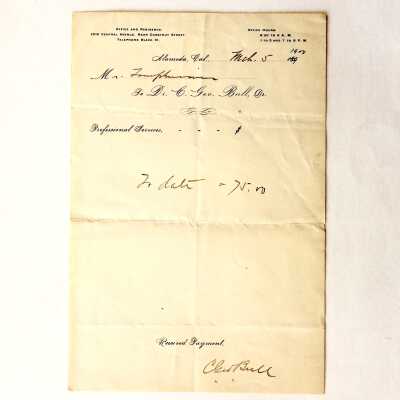 OFFICE AND RESIDENCE
CENTRAL AVENUE, NEAR CHESTNUT STREET
TELEPHONE BLACK
OFFICE HOURS
8 TO 10 A. M.
1 TO 3 AND 7 TO 8 P. M.
Alameda, Cal. Mch. 5 1900
Mr
To Dr. C. Geo. Bull, Dr.
Professional Services, - - - $
To date - 75.00
Received Payment,
C Geo Bull